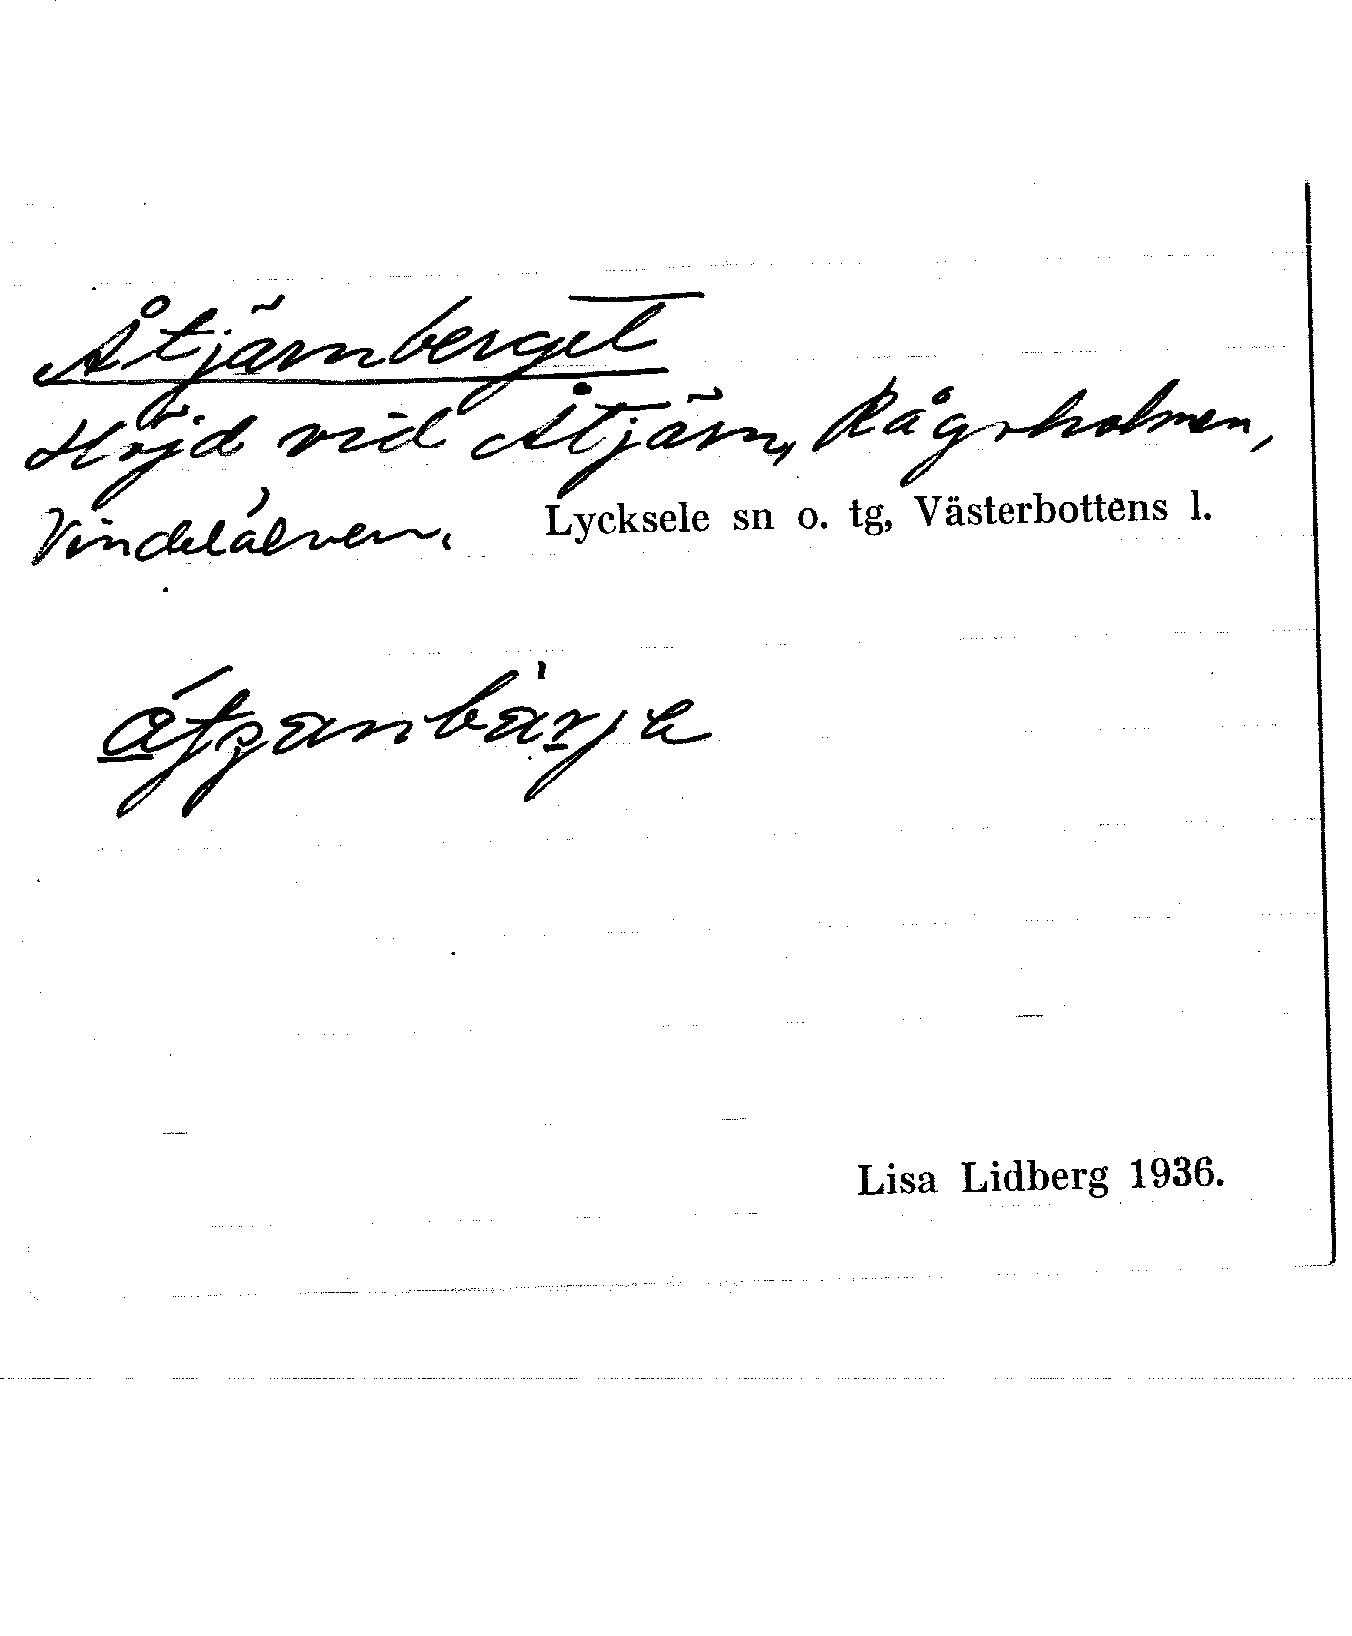 Åtjärnberget
Höjd vid Åtjärn, Rågoholmen,
Vindelälven. Lycksele sn o. tg, Västerbottens l.
Lisa Lidberg 1936.